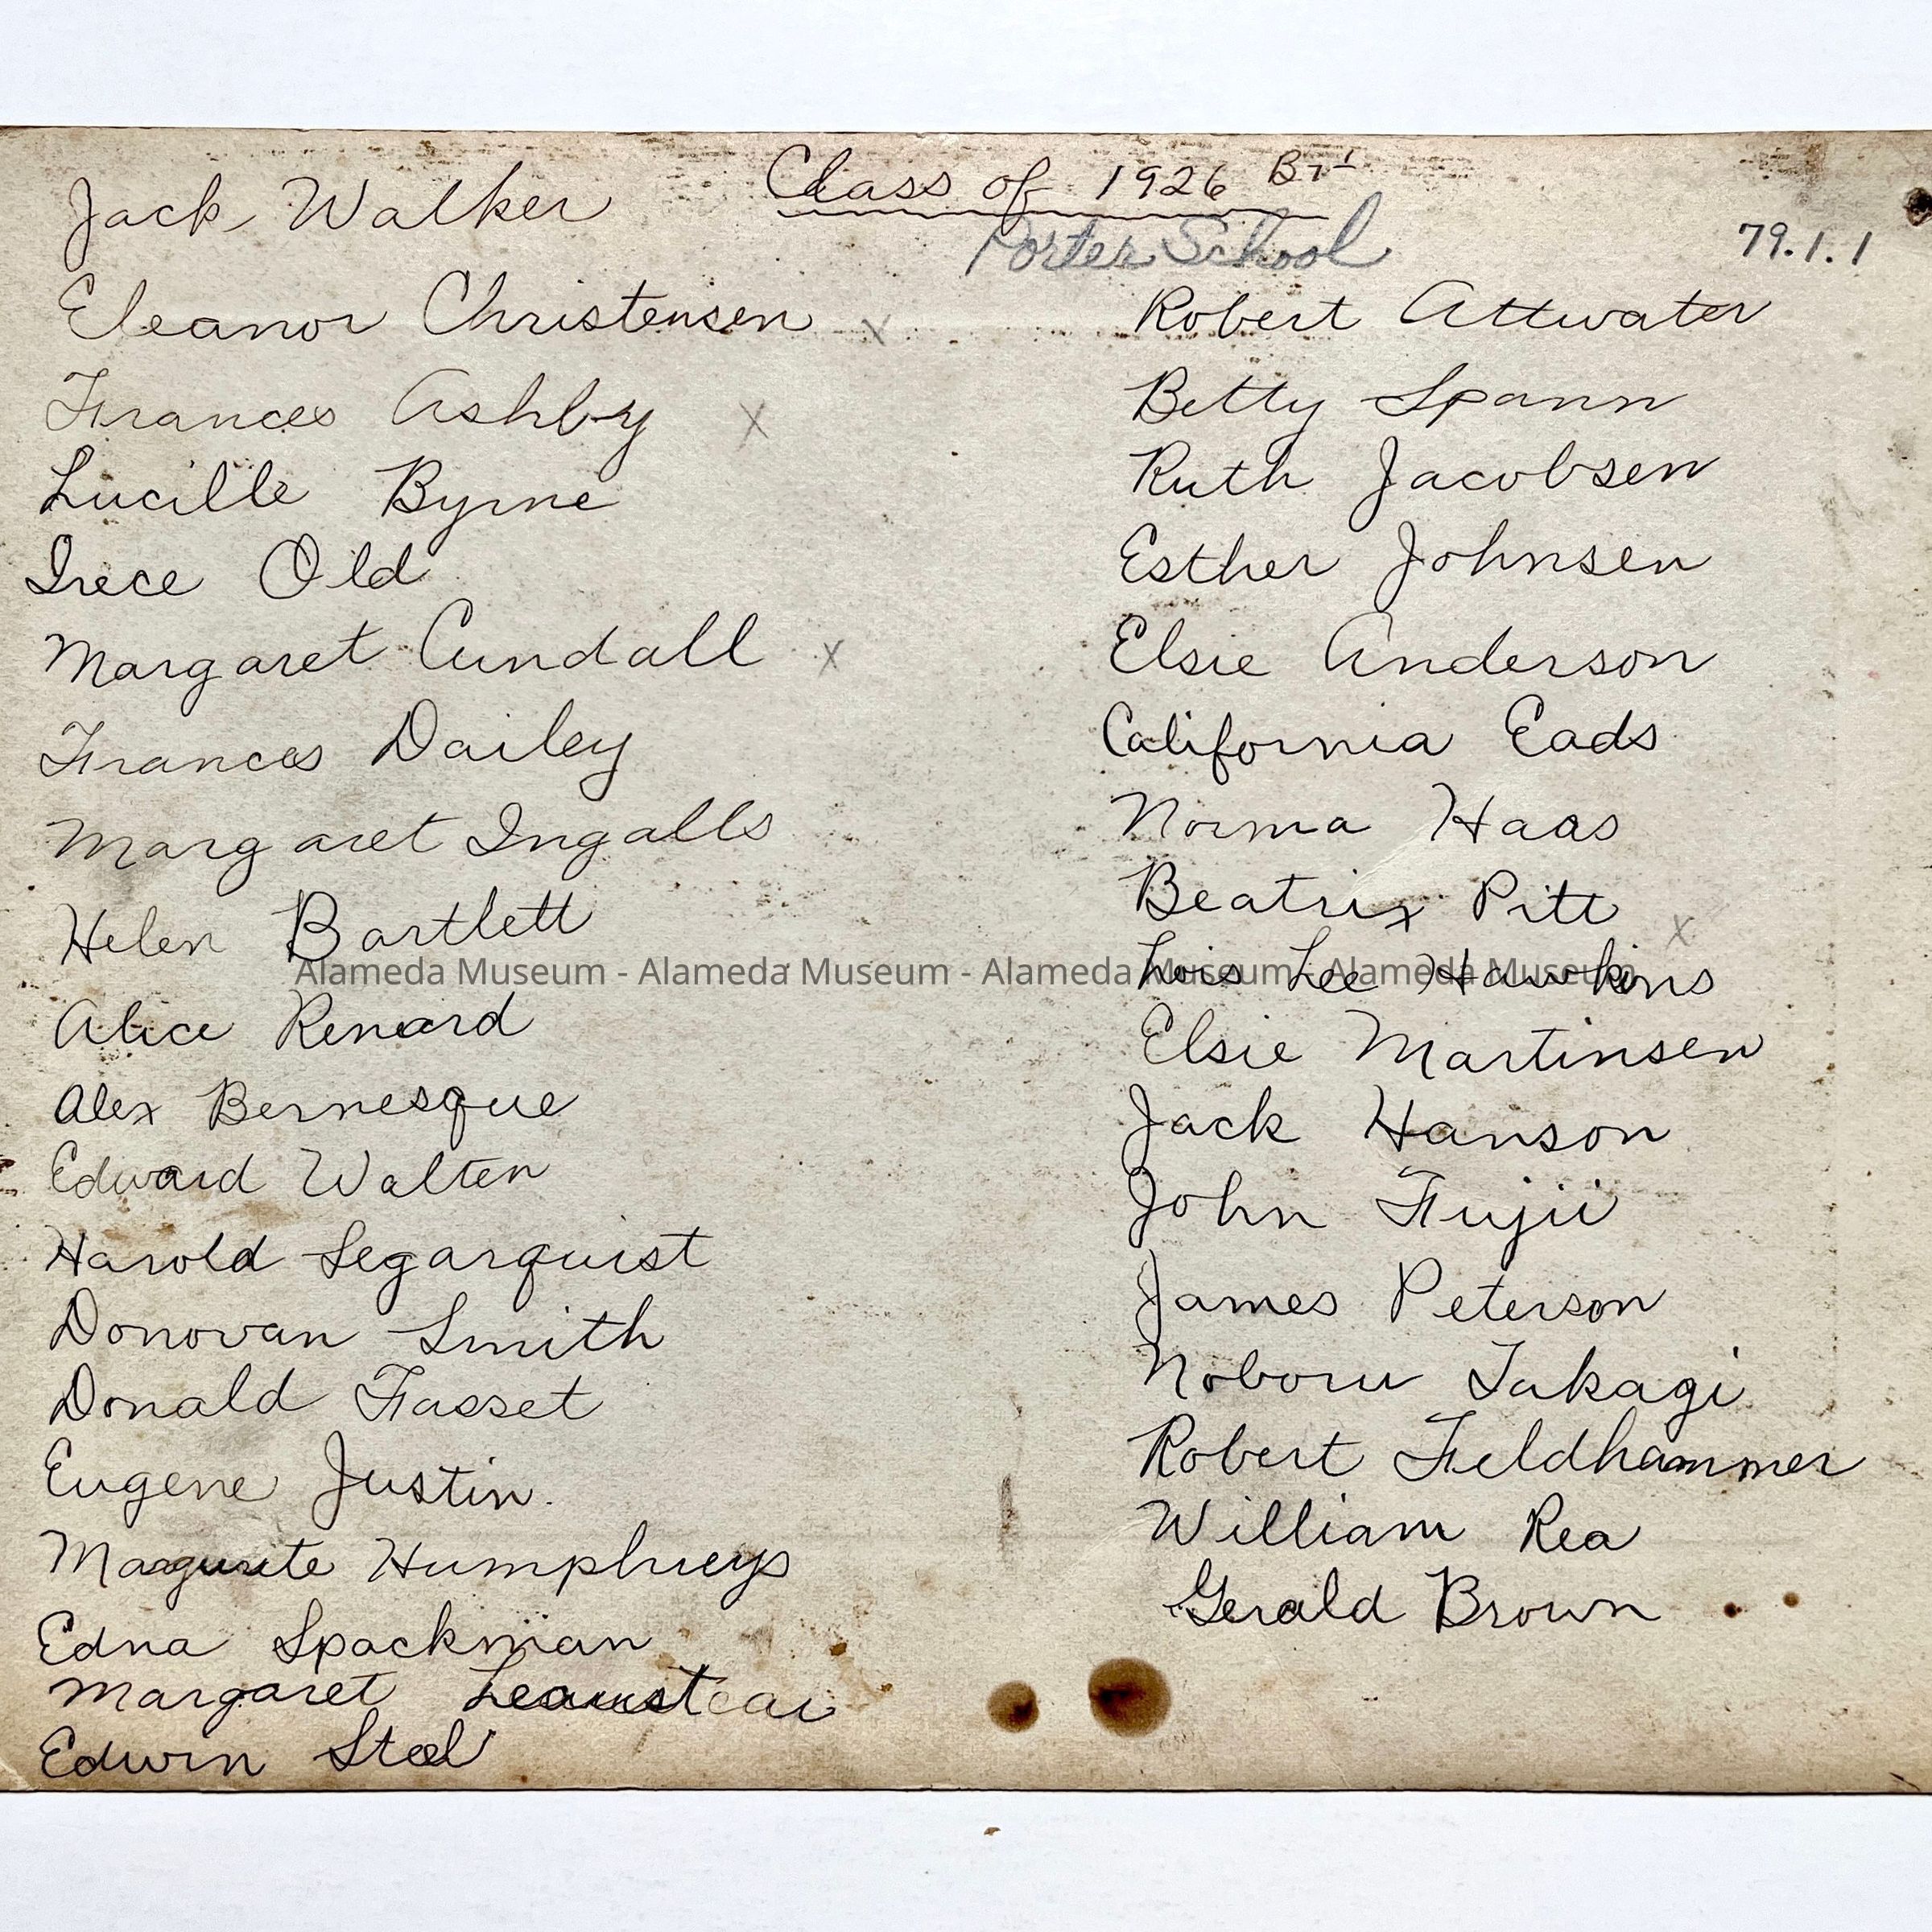 Class of 1926 B7¹
Porter School
79.1.1
Jack Walker
Eleanor Christensen x
Frances Ashby x
Lucille Byrne
Irece Old
Margaret Cundall x
Frances Dailey
Margaret Ingalls
Helen Bartlett
Alice Renard
Alex Bernesque
Edward Walten
Harold Segarquist
Donovan Smith
Donald Fasset
Eugene Justin.
Marguerite Humphreys
Edna Spackman
Margaret
Edwin Steel
Robert Attwater
Betty Spann
Ruth Jacobsen
Esther Johnsen
Elsie Anderson
California Eads
Norma Haas
Beatrix Pitt
Lois Lee Hawkins x
Elsie Martinsen
Jack Hanson
John Fujii
James Peterson
Noboru Takagi
Robert Feldhammer
William Rea
Gerald Brown
Alameda Museum - Alameda Museum - Alameda Museum - Alameda Museum